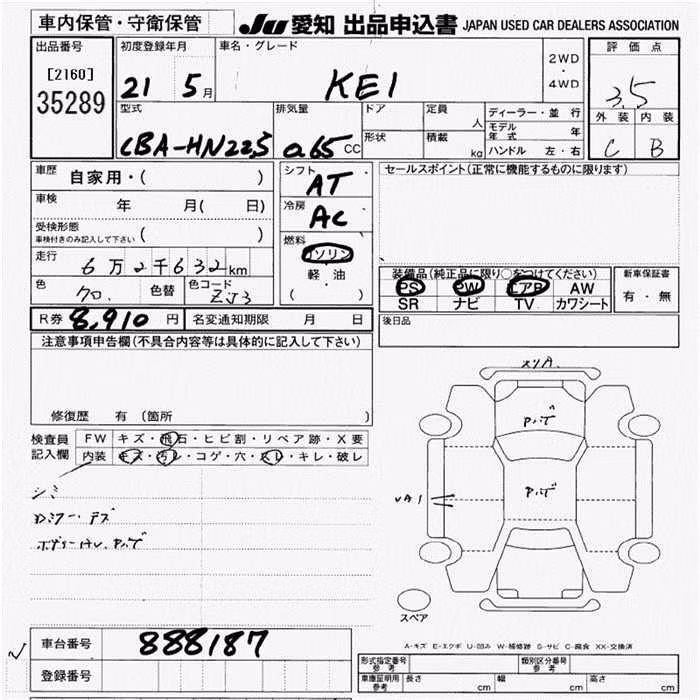 車内保管・守衛保管
JU 愛知 出品申込書 JAPAN USED CAR DEALERS ASSOCIATION
出品番号
[2160]
35289
初度登録年月
21 5月
車名・グレード
KEI
2WD
・
4WD
評価点
3.5
外装 内装
C B
型式
CBA-HN22S
排気量
0.65 CC
ドア
形状
定員
人
積載
kg
ディーラー・並行
モデル年式 年
ハンドル 左・右
車歴 自家用・( )
車検 年 月( 日)
受検形態
車検付きのみ記入して下さい ( )
走行
6万2千632km
色 クロ 色替 色コード ZJ3
シフト AT
冷房 AC
燃料
ガソリン
軽・油
( )
セールスポイント(正常に機能するものに限ります)
装備品(純正品に限り○をつけてください)
PS PW エアB AW
SR ナビ TV カワシート
新車保証書
有・無
R券 8,910 円 名変通知期限 月 日
後日品
注意事項申告欄(不具合内容等は具体的に記入して下さい)
修復歴 有(箇所
検査員
記入欄
FW キズ・飛石・ヒビ割・リペア跡・X要
内装 キズ・汚レ・コゲ・穴・スレ・キレ・破レ
シミ
スペア
A-キズ E-エクボ U-凹み W-補修跡 S-サビ C-腐食 XX-交換済
車台番号 888187
登録番号
形式指定番号
参考
類別区分番号
参考
車庫証明用
参考
長さ cm 幅 cm 高さ cm